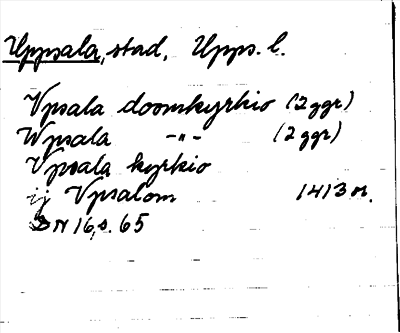 Uppsala, stad, Upps. l.
Vpsala doomkyrkio (2 ggr)
Wpsala -"- (2 ggr)
Vpsala kyrkio
ij Vpsalom 1413 or.
DN 16, s. 65